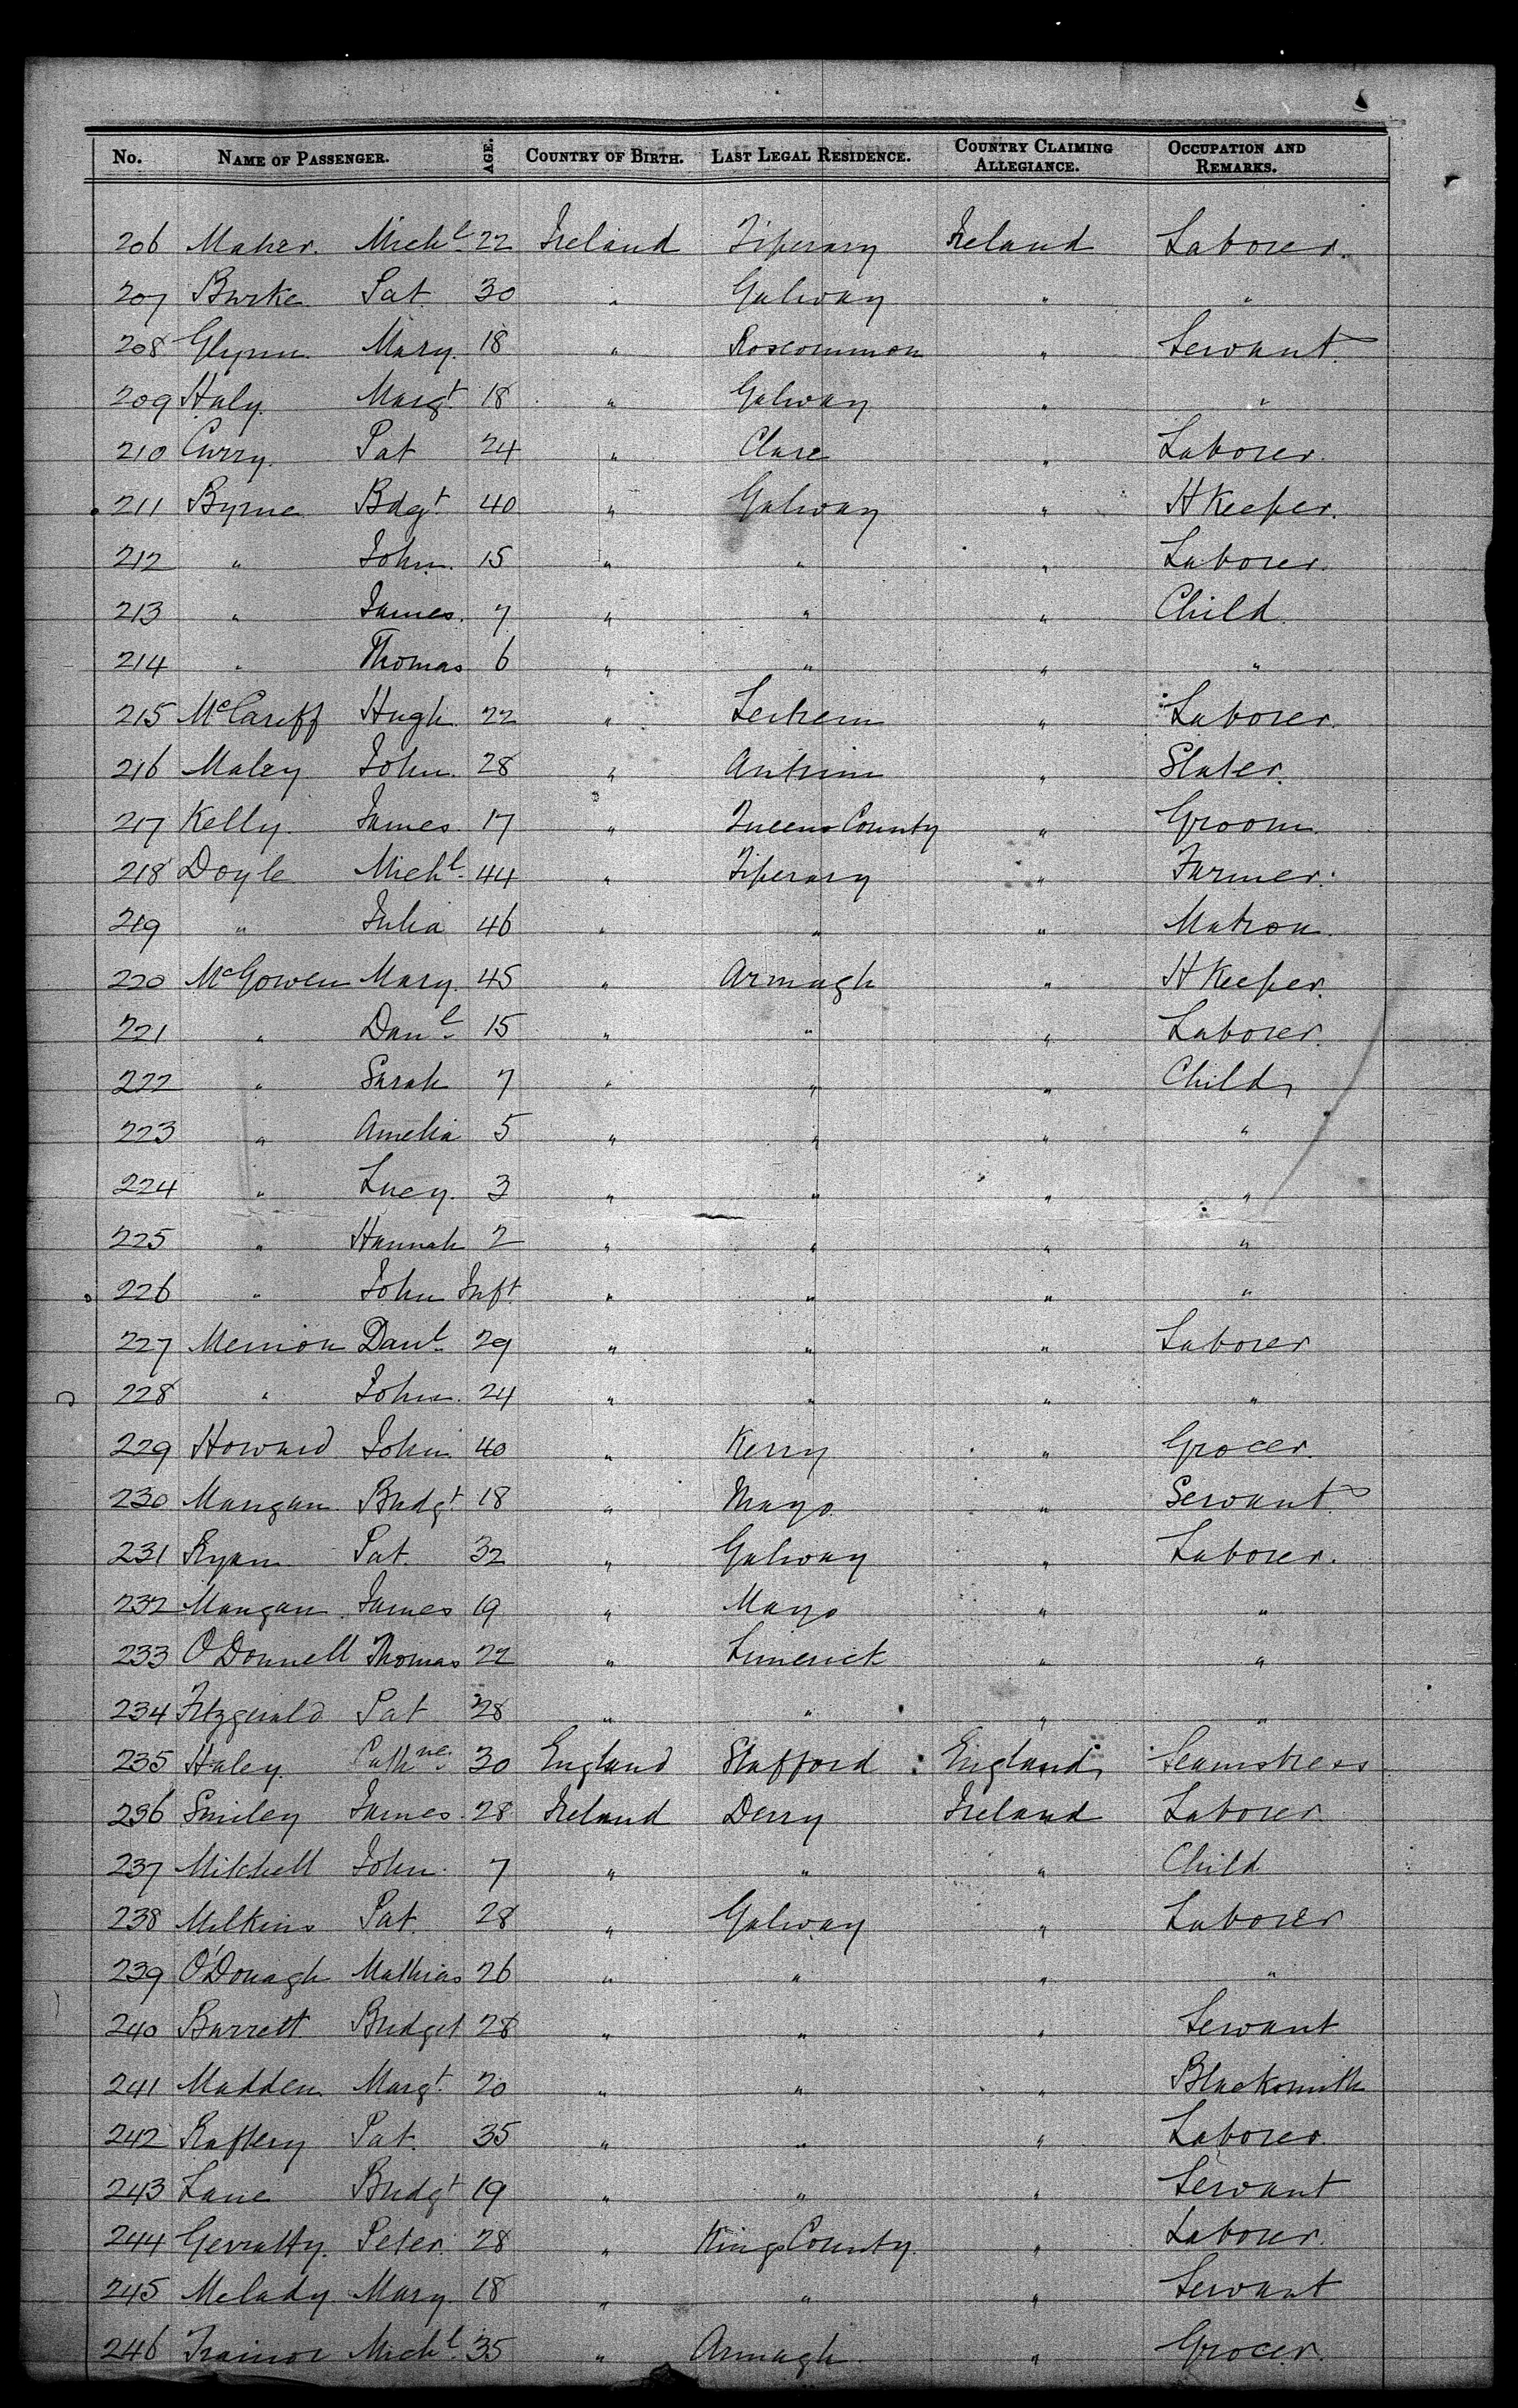 No. NAME OF PASSENGER. AGE. COUNTRY OF BIRTH. LAST LEGAL RESIDENCE. COUNTRY CLAIMING ALLEGIANCE. OCCUPATION AND REMARKS.
206 Maher. Michl 22 Ireland Tiperary Ireland Laborer.
207 Burke Pat 30 " Galway " "
208 Glynn Mary. 18 " Roscommon " Servant.
209 Haly. Margt 18 " Galway " "
210 Curry. Pat 24 " Clare " Laborer.
211 Byrne Bdgt 40 " Galway " H Keeper.
212 " John. 15 " " " Laborer.
213 " James. 7 " " " Child.
214 " Thomas 6 " " " "
215 Hugh 22 " Leitrem " Laborer.
216 Maley John. 28 " Antrim " Slater.
217 Kelly. James 17 " Queens County " Groom.
218 Doyle Michl 44 " Tiperary " Farmer.
219 " Julia 46 " " " Matron.
220 McGowen Mary 45 " Armagh " H Keeper.
221 " Danl 15 " " " Laborer.
222 " Sarah 7 " " " Child
223 " Amelia 5 " " " "
224 " Lucy. 3 " " " "
225 " Hannah 2 " " " "
226 " John Inft " " " "
227 Danl 29 " " " Laborer
228 " John. 24 " " " "
229 Howard John 40 " Kerry " Grocer.
230 Mangan Bridgt 18 " Mayo. " Servant.
231 Ryan Pat. 32 " Galway " Laborer.
232 Mangan James 19 " Mayo " "
233 O'Donnell Thomas 22 " Limerick " "
234 Fitzgerald Pat 28 " " " "
235 Haley Cathne 30 England Stafford England Seamstress
236 Smiley James 28 Ireland Derry Ireland Laborer
237 Mitchell John. 7 " " " Child
238 Milkins Pat. 28 " Galway " Laborer
239 O'Donagh Mathias 26 " " " "
240 Barrett Bridget 28 " " " Servant
241 Madden Margt. 20 " " " Blacksmith
242 Raftery Pat. 35 " " " Laborer.
243 Lane Bridgt 19 " " " Servant
244 Gerratty. Peter. 28 " Kings County. " Laborer.
245 Melady Mary 18 " " " Servant
246 Trainor Michl. 35 " Armagh. " Grocer.